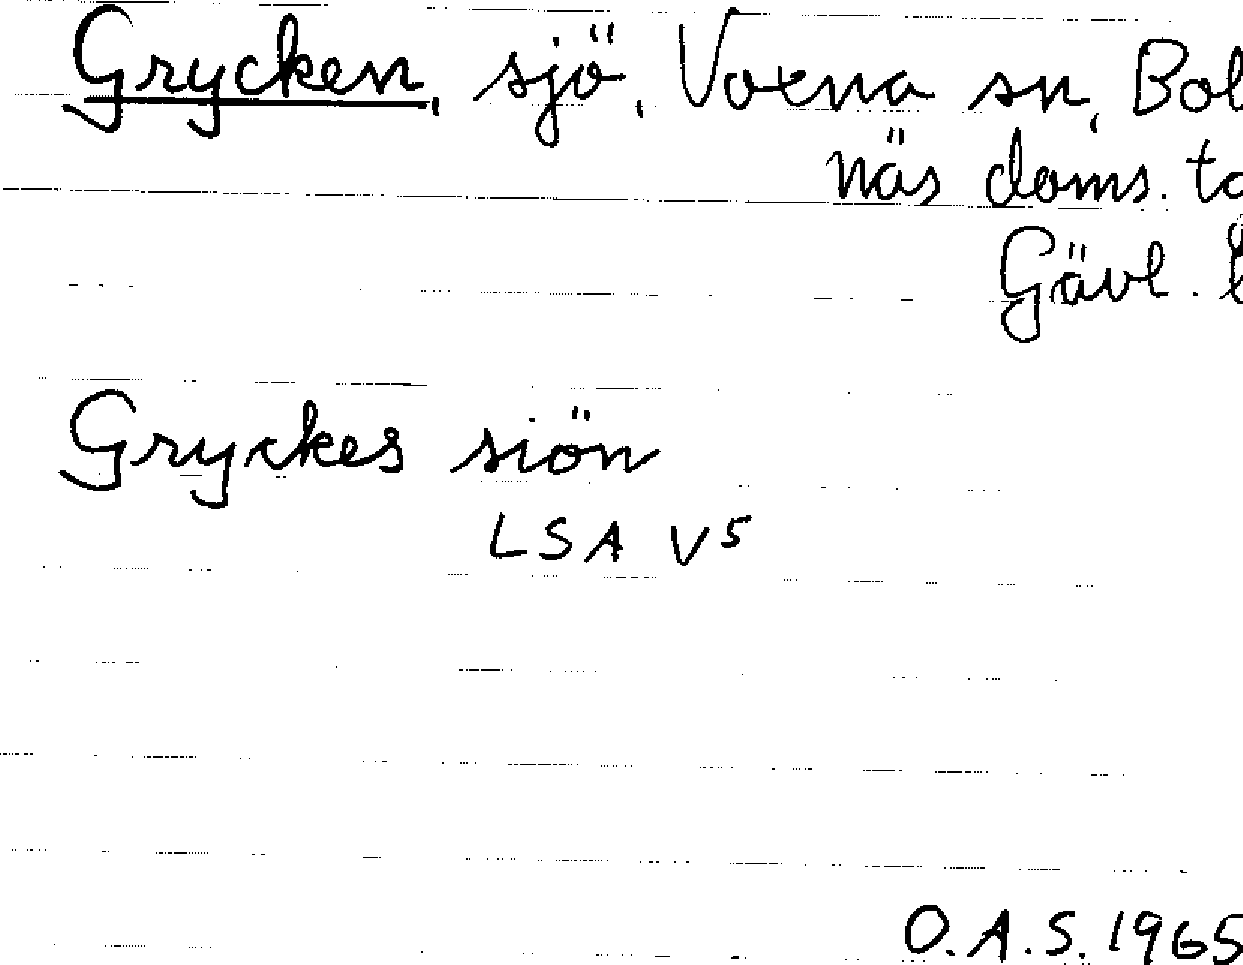 Grycken, sjö, Voxna sn, Bol
näs doms. to
Gävl. l
Gryckes siön
LSA V5
O.A.S. 1965